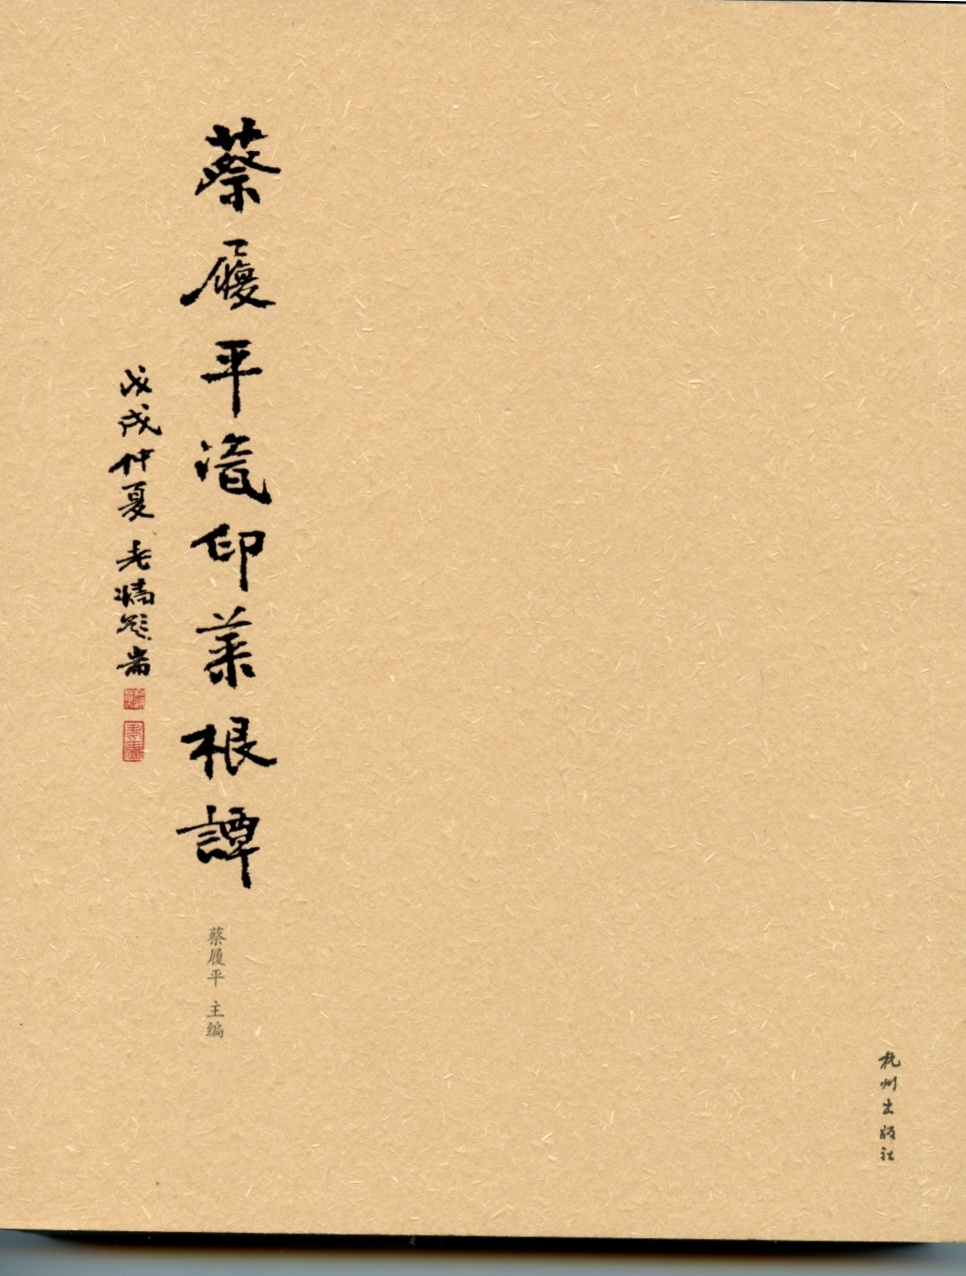 蔡履平印菜根譚
戊戌仲夏 老题耑
蔡履平 主编
杭州出版社